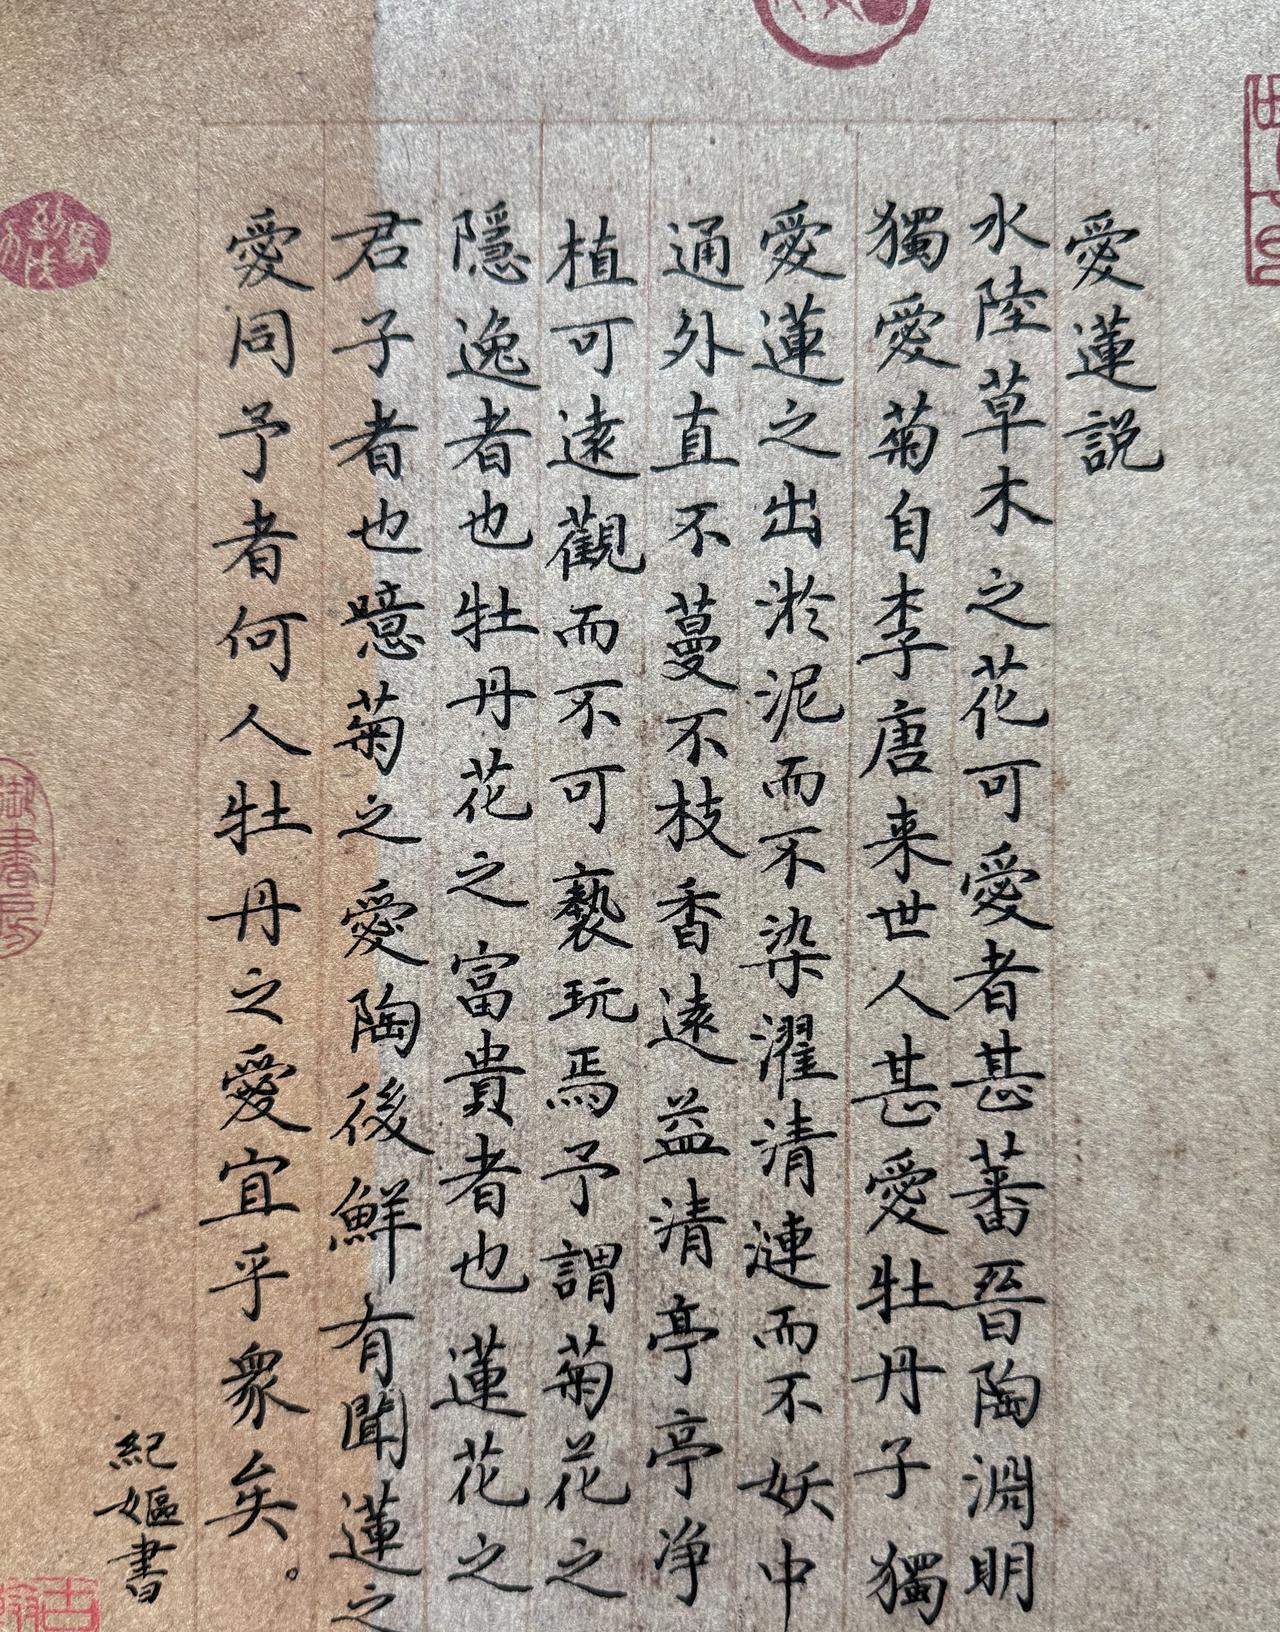 愛蓮説
水陸草木之花可愛者甚蕃晉陶淵明
獨愛菊自李唐来世人甚愛牡丹子獨
愛蓮之出淤泥而不染濯清漣而不妖中
通外直不蔓不枝香遠益清亭亭净
植可遠觀而不可褻玩焉予謂菊花之
隱逸者也牡丹花之富貴者也蓮花之
君子者也噫菊之愛陶後鮮有聞蓮之
愛同予者何人牡丹之愛宜乎衆矣。
紀嫗書
御書房